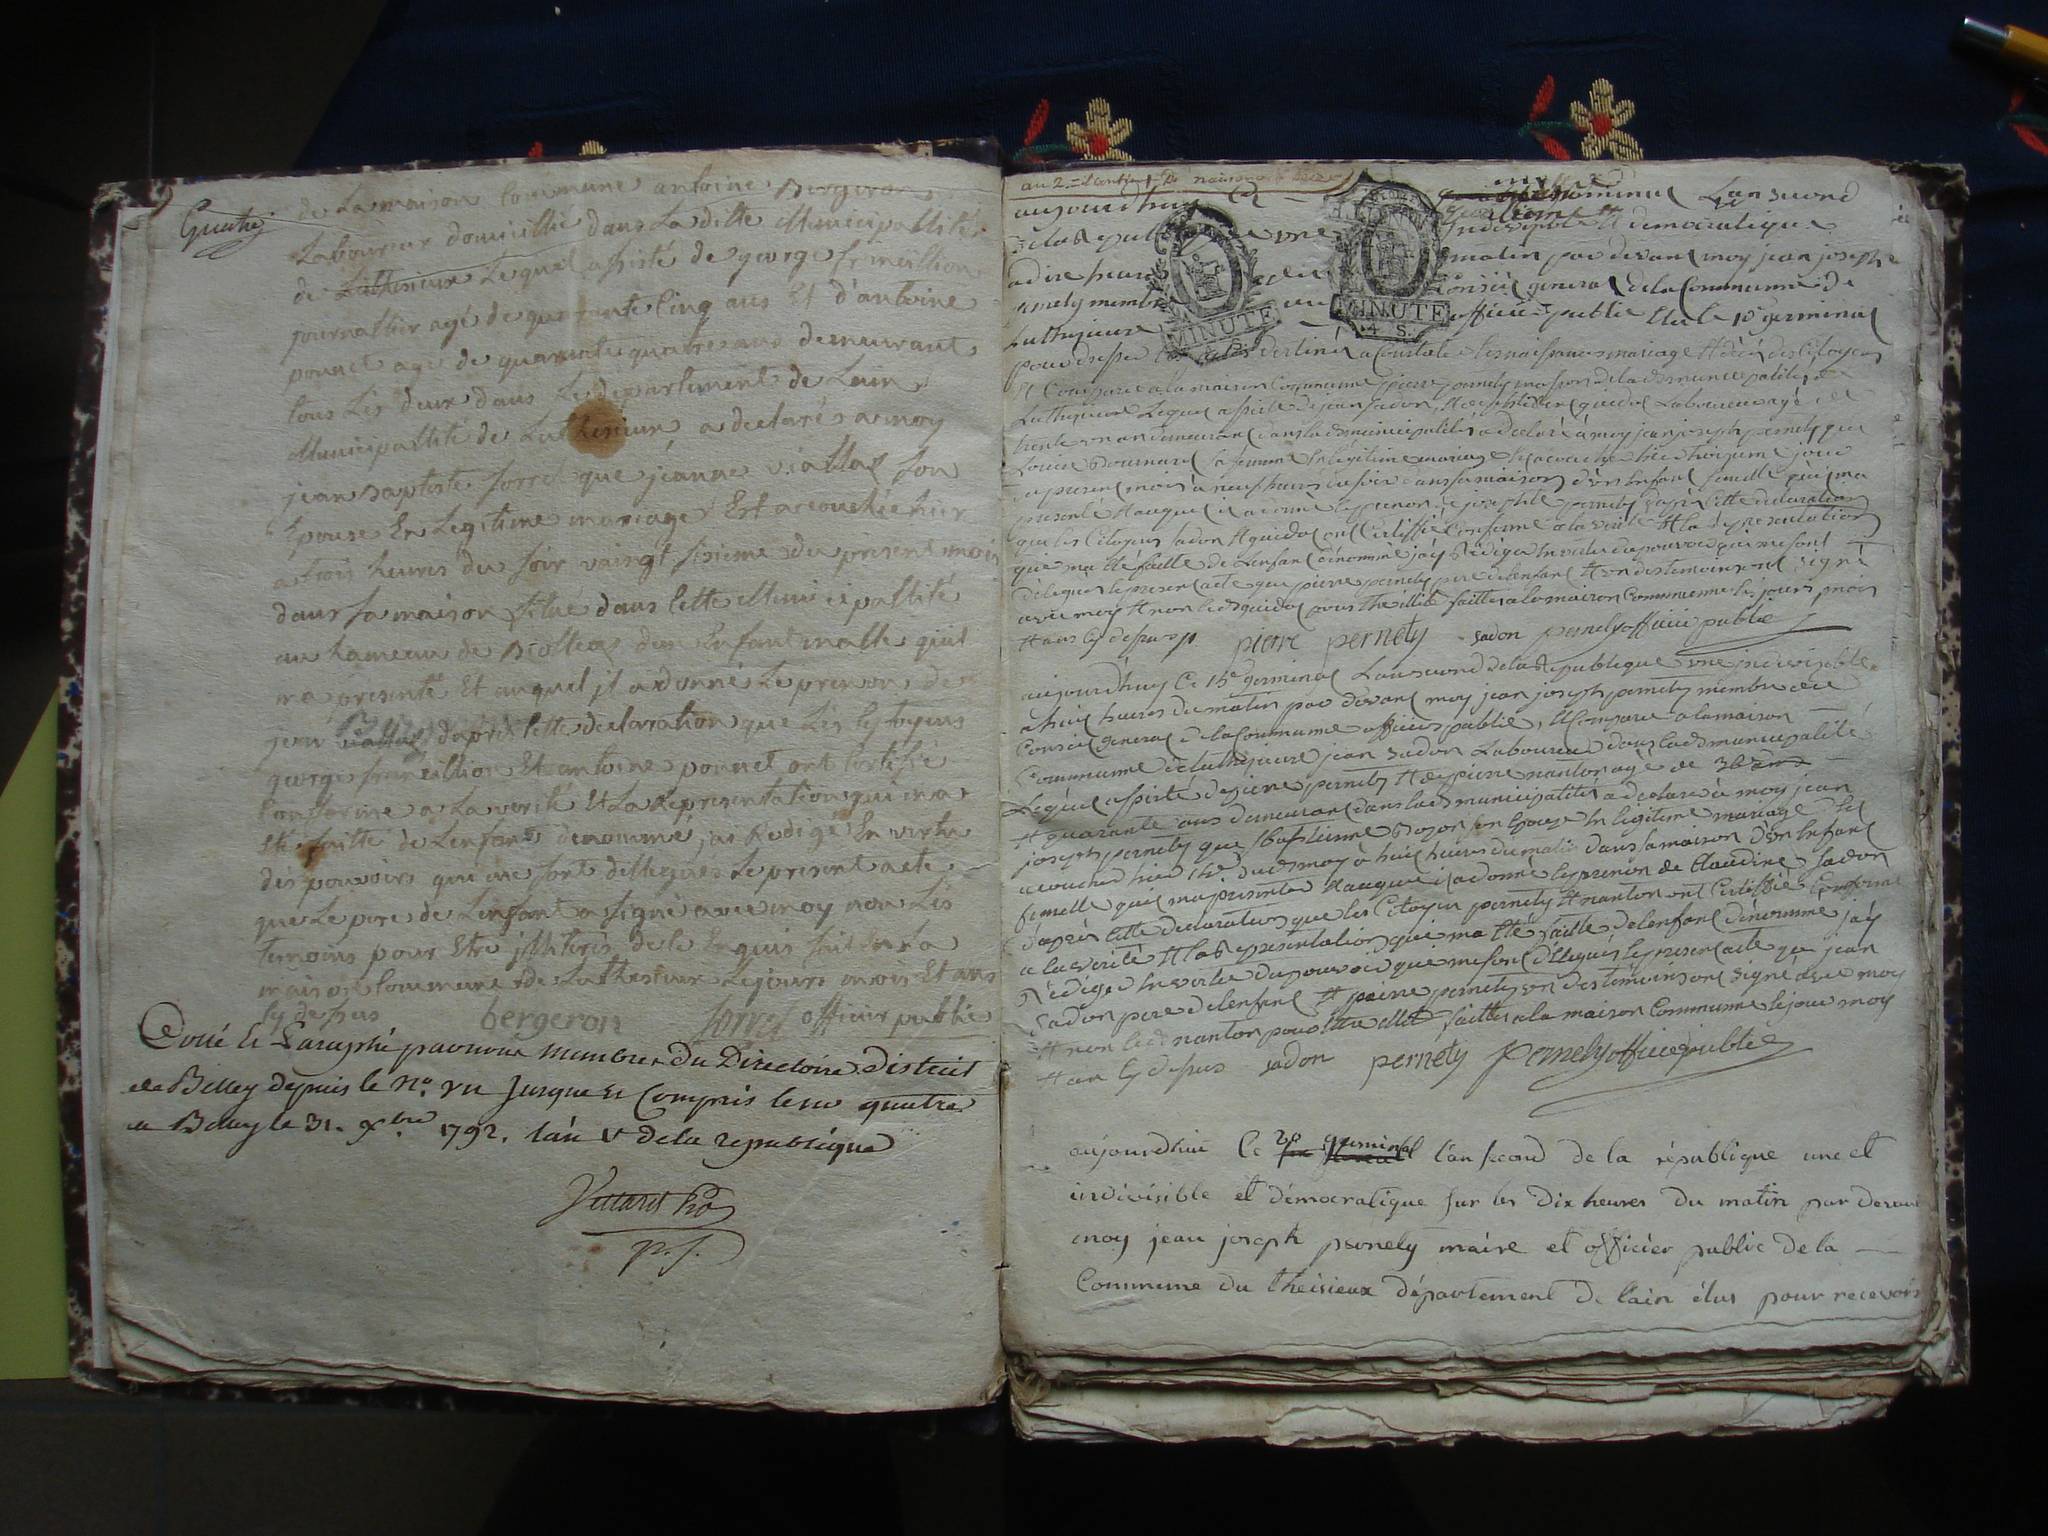 quatre
de La maison Commune antoine Bergeron
Laboureur domicillié dans La ditte Municipallité
de Luthesieux Lequel assisté de george francillion
journallier agé de quarante Cinq ans Et d'antoine
ponnet agé de quarante quatre ans demeurant
tous Les deux dans Le departement de Lain
Municipallité de Luthesieux a declaré a moy
jean baptiste forrel que jeanne viallet son
Epouse En Legitime mariage Est acouchée hier
a trois heures du soir vaingt sixieme du present mois
dans sa maison situé dans Cette Municipallité
au hameau de dun Enfant malle qu'il
ma presenté Et auquel jl a donné Le prenom de
jean daprès Cette declaration que Les Cytoyens
george francillion Et antoine ponnet ont Certifié
Conforme a La verité Et La Representation qui ma
Eté faitte de Lenfant denommé jai Redigé En vertu
des pouvoirs qui me sont dellegués Le present acte
que Le pere de Lenfant a signé avec moy non Les
temoins pour Etre jlliterés de le Enquis fait En La
maison Commune de Luthesieux Le jours mois Et ans
Cy dessus bergeron officier public
Cotté et Paraphé par nous membre du Directoire District
de Belley depuis le No. un Jusque et Compris le no quatre
a Belley le 31. xbre 1792. l'an 1er de la republique
p. s.
aujourdhuy germinal Lan second
de la Republique une Indivisible et democratique
a dix heures du matin par devant moy jean joseph
pernety membre du Conseil general de la Commune de
Luthezieux officier public Elu le germinal
MINUTE
MINUTE
4 S.
pour dresser les actes destinés a Constater les naissances mariage et décès des Citoyens
Et Comparu a la maison Commune pierre pernety de lad municipalité de
Luthezieux Lequel assisté de jean sadon, et de guidoz Laboureur agé de
trente un an demeurant dans lad municipalités a declaré à moy jean joseph pernety que
Louise sa femme En légitime mariage Est acouchée hier jour
du present mois à neuf heures du soir dans sa maison d'un Enfant femelle qu'il ma
presenté et auquel il a donné le prenom de josephte pernety d'après Cette declaration
que les Citoyens sadon et guidoz ont Certiffié Conforme à la vérité et la représentation
que ma été faitte de L'enfant dénommé jay Rédigé En vertu du pouvoir qui me sont
délégués le present acte que pierre pernety pere de lenfant et un des temoins ont signé
avec moy et non led guidoz pour être illité faitte a la maison Commune les jours mois
et ans Cy dessus pierre pernety sadon pernety officier public
aujourd'huy Ce 15e germinal Lan second de la Republique une indivisible
a huit heures du matin par devant moy jean joseph pernety membre du
Conseil general de la Commune officier public, Est Comparu a la maison
Commune de luthezieux jean sadon Laboureur dans lad municipalité
Lequel assisté de pierre pernety et de pierre nanton agé de 36 ans
et quarante ans demeurant dans lad municipalité a declaré à moy jean
joseph pernety que sébastienne son Epouze En légitime mariage Est
acouchée hier 14e dud moy à huit heures du matin dans sa maison d'un Enfant
femelle qu'il ma presenté et auquel il a donné le prenom de Claudine sadon
d'après Cette declaration que les Citoyen pernety et nanton ont Certiffié Conforme
a la vérité et la Representation qui ma été faitte de lenfant dénommé jay
Rédigé En vertu du pouvoir que me sont délégués le present acte que jean
sadon pere de lenfant et pierre pernety un des temoins ont signé avec moy
et non led nanton pour être illité faitte a la maison Commune le jour moy
et an Cy dessus sadon pernety pernety officier public
aujourdhui Ce 20 germinal l'an second de la république une et
indivisible et démocratique sur les dix heures du matin par devant
moy jean joseph pernety maire et officier public de la
Commune du theisieux département de l'ain élus pour recevoir